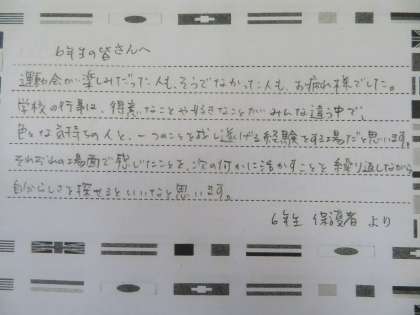 6年生の皆さんへ
運動会が楽しみだった人も、そうでなかった人も、お疲れ様でした。
学校の行事は、得意なことや好きなことがみんな違う中で、
色々な気持ちの人と、一つのことを成し遂げる経験をする場だと思います。
それぞれの場面で感じたことを、次の何かに活かすことを繰り返しながら
自分らしさを探せるといいなと思います。
6年生 保護者 より